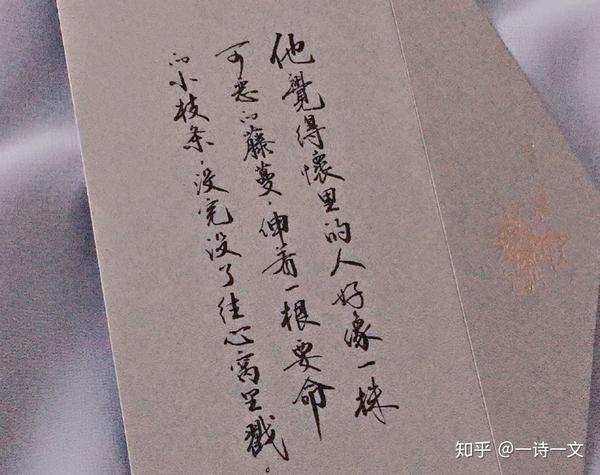 他覺得懷里的人好像一株
可恶的藤蔓，伸着一根要命
的小枝条，没完没了往心窝里戳。
知乎 @一诗一文